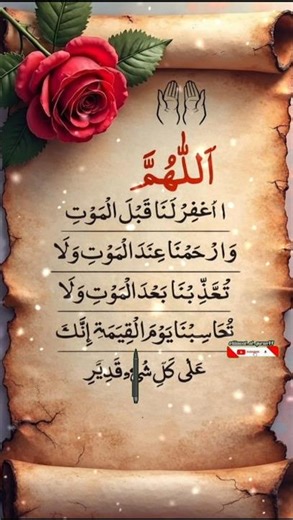 اَللّٰهُمَّ
ا اغْفِرْ لَنَا قَبْلَ الْمَوْتِ
وَارْحَمْنَا عِنْدَ الْمَوْتِ وَلَا
تُعَذِّبْنَا بَعْدَ الْمَوْتِ وَلَا
تُحَاسِبْنَا يَوْمَ الْقِيٰمَةِ اِنَّكَ
عَلٰى كَلِ شَیْءٍ قَدِيْرٍ